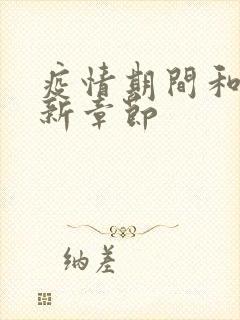 疫情期間和
新章節
纳差